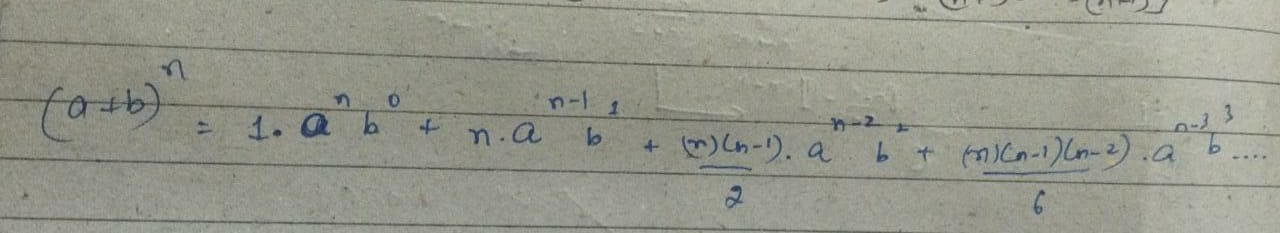 (a+b)^n = 1. a^n b^0 + n. a^(n-1) b^1 + (n)(n-1)/2 . a^(n-2) b^2 + (n)(n-1)(n-2)/6 . a^(n-3) b^3 ....